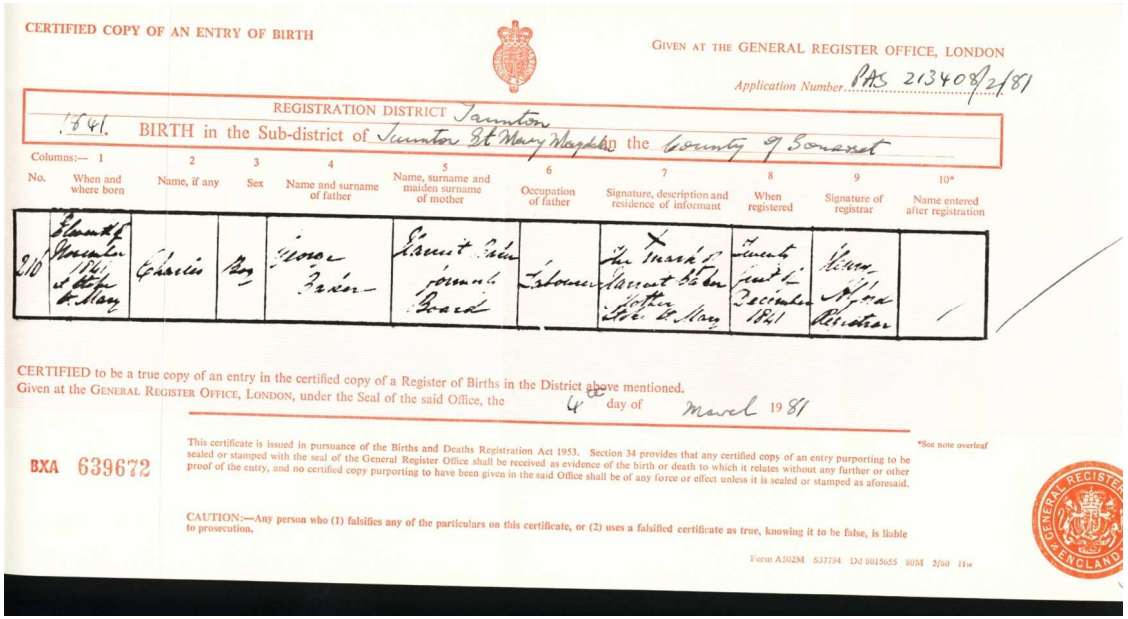 CERTIFIED COPY OF AN ENTRY OF BIRTH
GIVEN AT THE GENERAL REGISTER OFFICE, LONDON
Application Number PAS 213408/2/81
REGISTRATION DISTRICT Taunton
1841. BIRTH in the Sub-district of Taunton St Mary Magdalen in the County of Somerset
Columns:— 1 2 3 4 5 6 7 8 9 10*
No. When and where born Name, if any Sex Name and surname of father Name, surname and maiden surname of mother Occupation of father Signature, description and residence of informant When registered Signature of registrar Name entered after registration
Eleventh of George Harriet Baker X The mark of Twenty Henry
November Harriet Baker
216 1841 Charles Boy Baker formerly Labourer Mother first of Alford
at Stoke Board Stoke St. Mary December Registrar
St. Mary 1841
CERTIFIED to be a true copy of an entry in the certified copy of a Register of Births in the District above mentioned.
Given at the GENERAL REGISTER OFFICE, LONDON, under the Seal of the said Office, the 4th day of March 1981
*See note overleaf
This certificate is issued in pursuance of the Births and Deaths Registration Act 1953. Section 34 provides that any certified copy of an entry purporting to be
sealed or stamped with the seal of the General Register Office shall be received as evidence of the birth or death to which it relates without any further or other
proof of the entry, and no certified copy purporting to have been given in the said Office shall be of any force or effect unless it is sealed or stamped as aforesaid.
BXA 639672
CAUTION:—Any person who (1) falsifies any of the particulars on this certificate, or (2) uses a falsified certificate as true, knowing it to be false, is liable
to prosecution.
Form A502M S37794 Dd 8015655 80M 5/80 Hw
GENERAL REGISTER
ENGLAND